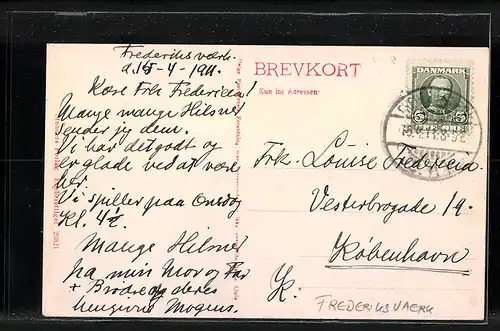 Frederiksværk.
d. 15-4-1911.
Kære Frk Fredericia!
Mange mange Hilsner
sender jeg dem.
Vi har det godt og
er glade ved at være
her.
Vi spiller paa Onsdag
Kl. 4½
Mange Hilsner
fra min Mor og Far
+ Brødre og deres
hengivne Mogens.
BREVKORT
Kun for Adressen
DANMARK
5 5
Frk. Louise Fredericia.
Vesterbrogade 19.
København
K.
FREDERIKSVAERK